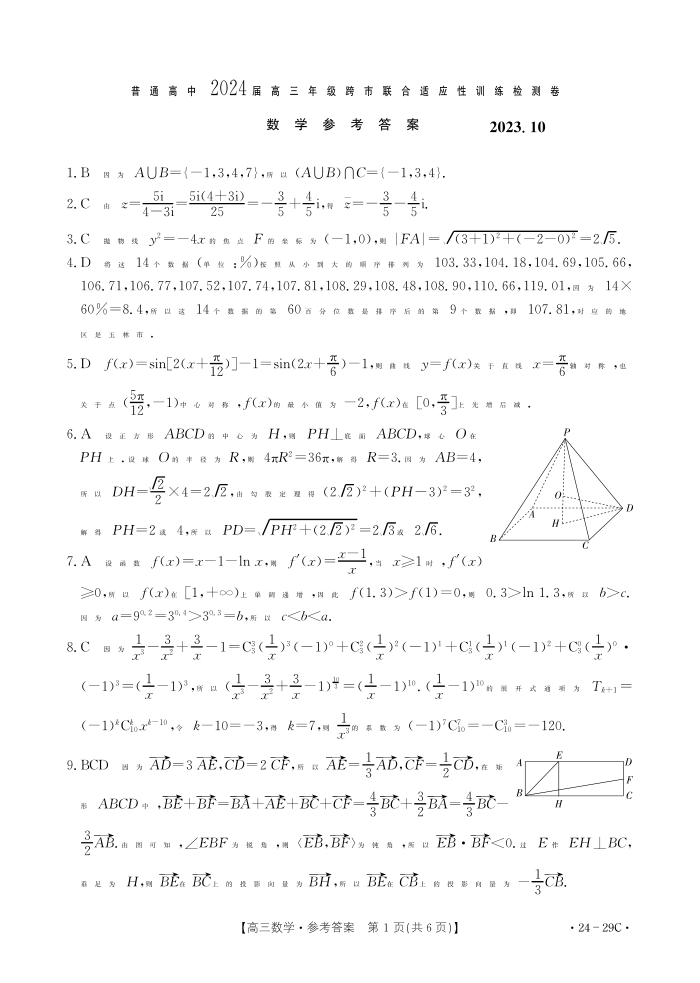 普通高中2024届高三年级跨市联合适应性训练检测卷
数学参考答案 2023.10
1.B 因为 A∪B={-1,3,4,7},所以 (A∪B)∩C={-1,3,4}.
2.C 由 z=5i/(4-3i)=5i(4+3i)/25=-3/5+4/5i,得 z̄=-3/5-4/5i.
3.C 抛物线 y²=-4x 的焦点 F 的坐标为 (-1,0),则 |FA|=√((3+1)²+(-2-0)²)=2√5.
4.D 将这 14 个数据(单位:%)按照从小到大的顺序排列为 103.33,104.18,104.69,105.66,
106.71,106.77,107.52,107.74,107.81,108.29,108.48,108.90,110.66,119.01,因为 14×
60%=8.4,所以这 14 个数据的第 60 百分位数是排序后的第 9 个数据,即 107.81,对应的地
区是玉林市.
5.D f(x)=sin[2(x+π/12)]-1=sin(2x+π/6)-1,则曲线 y=f(x)关于直线 x=π/6轴对称,也
关于点(5π/12,-1)中心对称,f(x)的最小值为 -2,f(x)在[0,π/3]上先增后减.
6.A 设正方形 ABCD 的中心为 H,则 PH⊥底面 ABCD,球心 O 在
PH 上.设球 O 的半径为 R,则 4πR²=36π,解得 R=3.因为 AB=4,
所以 DH=√2/2×4=2√2,由勾股定理得 (2√2)²+(PH-3)²=3²,
解得 PH=2 或 4,所以 PD=√(PH²+(2√2)²)=2√3或 2√6.
P
O
A
D
H
B
C
7.A 设函数 f(x)=x-1-ln x,则 f′(x)=(x-1)/x,当 x≥1 时,f′(x)
≥0,所以 f(x)在[1,+∞)上单调递增,因此 f(1.3)>f(1)=0,则 0.3>ln 1.3,所以 b>c.
因为 a=9^0.2=3^0.4>3^0.3=b,所以 c<b<a.
8.C 因为 1/x³-3/x²+3/x-1=C₃³(1/x)³(-1)⁰+C₃²(1/x)²(-1)¹+C₃¹(1/x)¹(-1)²+C₃⁰(1/x)⁰·
(-1)³=(1/x-1)³,所以(1/x³-3/x²+3/x-1)^(10/3)=(1/x-1)¹⁰.(1/x-1)¹⁰的展开式通项为 Tₖ₊₁=
(-1)ᵏC₁₀ᵏxᵏ⁻¹⁰,令 k-10=-3,得 k=7,则 1/x³的系数为(-1)⁷C₁₀⁷=-C₁₀³=-120.
9.BCD 因为 AD→=3AE→,CD→=2CF→,所以 AE→=1/3AD→,CF→=1/2CD→,在矩
形 ABCD 中,BE→+BF→=BA→+AE→+BC→+CF→=4/3BC→+3/2BA→=4/3BC→-
3/2AB→.由图可知,∠EBF 为锐角,则〈EB→,BF→〉为钝角,所以 EB→·BF→<0.过 E 作 EH⊥BC,
垂足为 H,则 BE→在 BC→上的投影向量为 BH→,所以 BE→在 CB→上的投影向量为 -1/3CB→.
A
E
D
F
B
H
C
【高三数学·参考答案 第 1 页(共 6 页)】
·24-29C·